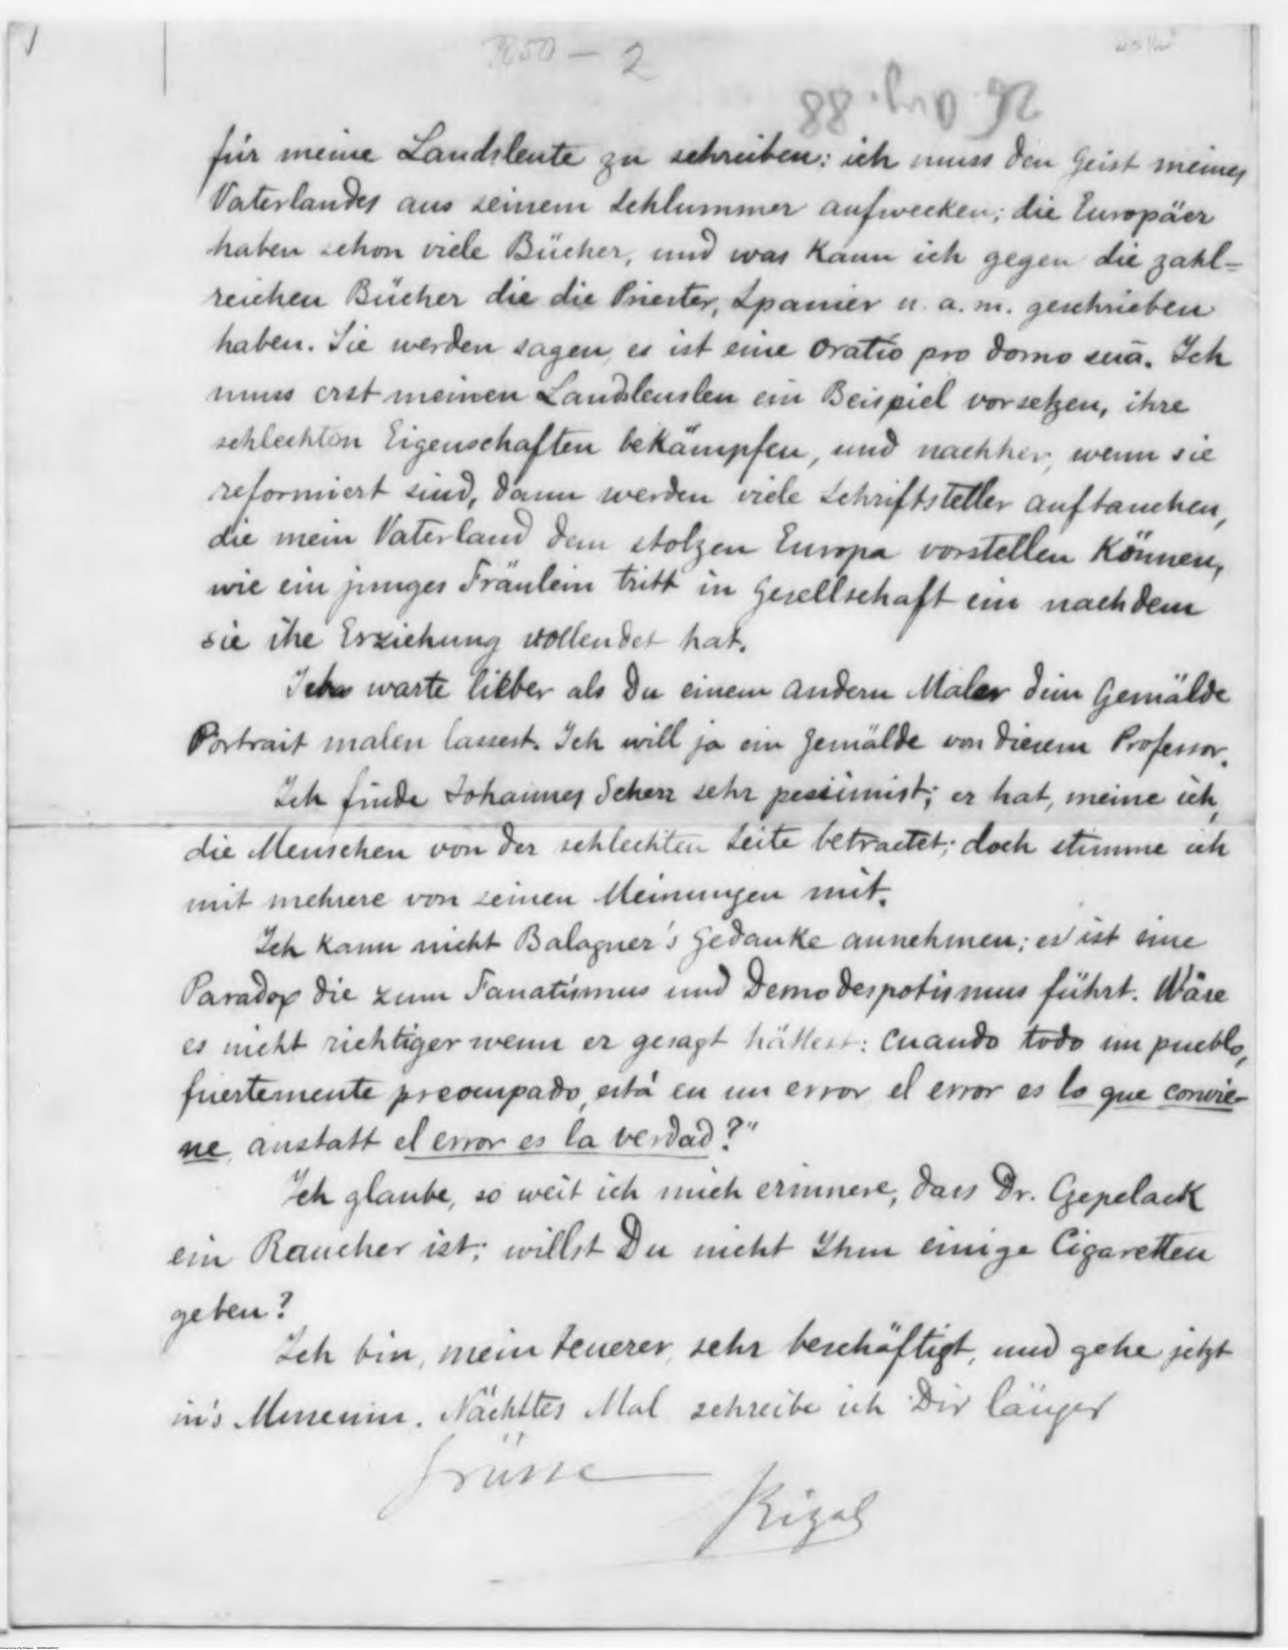 2
26 Aug. 88
für meine Landsleute zu schreiben: ich muss den Geist meines
Vaterlandes aus seinem Schlummer aufwecken; die Europäer
haben schon viele Bücher, und was kann ich gegen die zahl=
reichen Bücher die die Priester, Spanier u. a. m. geschrieben
haben. Sie werden sagen, es ist eine oratio pro domo suā. Ich
muss erst meinen Landsleuslen ein Beispiel vorsetzen, ihre
schlechten Eigenschaften bekämpfen, und nachher, wenn sie
reformiert sind, dann werden viele Schriftsteller auftauchen,
die mein Vaterland dem stolzen Europa vorstellen können,
wie ein junges Fräulein tritt in Gesellschaft ein nachdem
sie ihe Erziehung vollendet hat.
Ich warte lieber als Du einem andern Maler dein Gemälde
Portrait malen lassest. Ich will ja ein Gemälde von diesem Professor.
Ich finde Johannes Scherr sehr pessimist; er hat, meine ich,
die Menschen von der schlechten Seite betractet; doch stimme ich
mit mehrere von seinen Meinungen mit.
Ich kann nicht Balaguer's Gedanke annehmen; es ist eine
Paradox die zum Fanatismus und Demodespotismus führt. Wäre
es nicht richtiger wenn er gesagt hättest: cuando todo un pueblo,
fuertemente preocupado, está en un error el error es lo que convie-
ne, anstatt el error es la verdad?"
Ich glaube, so weit ich mich erinnere, dass Dr. Czepelack
ein Raucher ist; willst Du nicht Ihm einige Cigaretten
geben?
Ich bin, mein teuerer, sehr beschäftigt, und gehe jetzt
in's Museum. Nächstes Mal schreibe ich Dir länger
Grüsse
Rizal